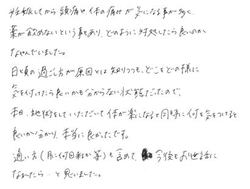 妊娠してから頭痛や体の痛みが気になる事が多く、
薬が飲めないという事もあり、どのように対処したら良いのか
なやんでいました。
日頃の過ごし方が原因とは知りつつも、どこをどの様に
気を付けたら良いかも分からない状態だったので、
本日、施術をしていただいて体が楽になると同時に、何に気をつけると
良いか分かり、本当に良かったです。
通い方(月に何日程か等)も含めて、今後もお世話に
なれたら・・と思いました。